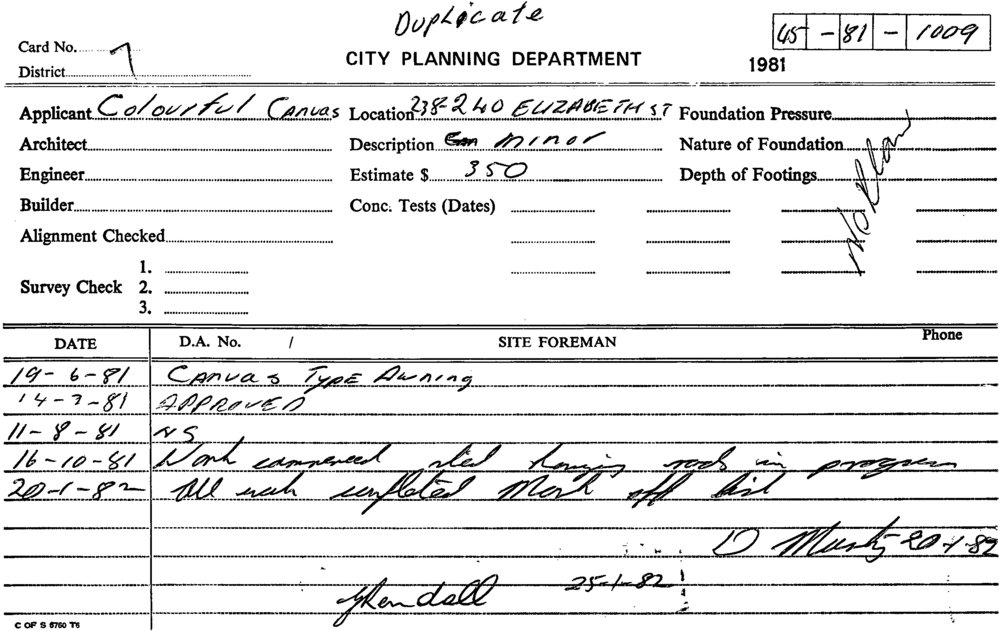 Duplicate
45 - 81 - 1009
Card No. 7
CITY PLANNING DEPARTMENT
1981
District
Applicant Colourful Canvas Location 238-240 ELIZABETH ST Foundation Pressure
Architect Description Minor Nature of Foundation
Engineer Estimate $ 350 Depth of Footings
No Plan
Builder Conc. Tests (Dates)
Alignment Checked
1.
Survey Check 2.
3.
DATE D.A. No. / SITE FOREMAN Phone
19-6-81 Canvas Type Awning
14-7-81 APPROVED
11-8-81 NS
16-10-81 Work commenced steel hanging rods in progress
20-1-82 All work completed Mark off list
D 20-1-82
25-1-82
C OF S 6760 T6